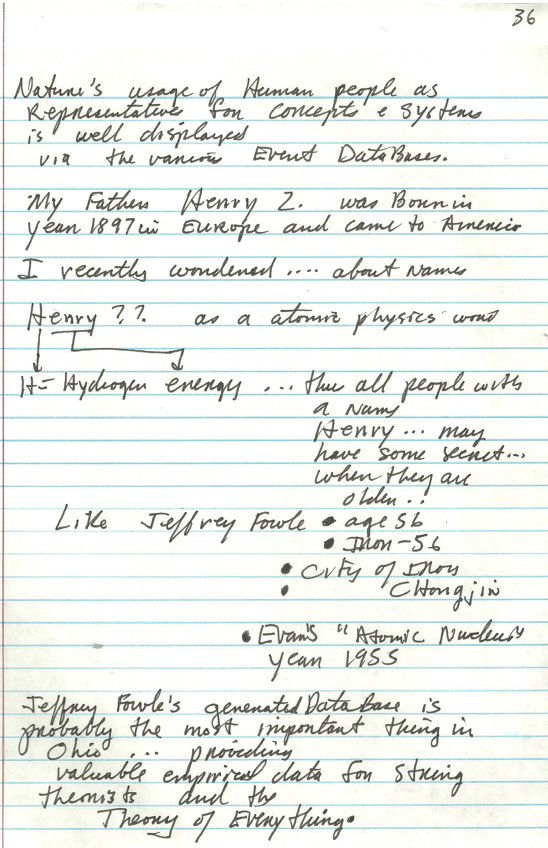 36
Nature's usage of Human people as
Representatives for concepts & Systems
is well displayed
via the various Event DataBases.
My Father Henry Z. was Born in
year 1897 in Europe and came to America
I recently wondered .... about Names
Henry ?? as a atomic physics word
H = Hydrogen energy ... thus all people with
a Name
Henry ... may
have some secret...
when they are
older ..
Like Jeffrey Fowle • age 56
• Iron-56
• City of Iron
• Chongjin
• Evans "Atomic Nucleus"
year 1955
Jeffrey Fowle's generated DataBase is
probably the most important thing in
Ohio ... providing
valuable empirical data for string
theorists and the
Theory of Everything.